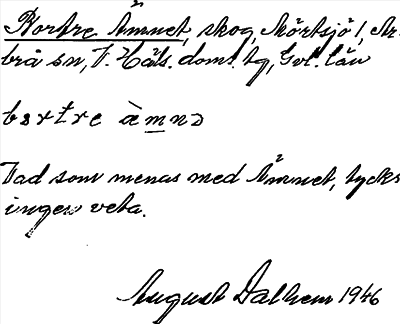 Bortre Ämnet, skog, Mörtsjö 1, Är-
brå sn, V. Häls. doms. tg, Gvl. län
bortre àmnə
Vad som menas med Ämnet, tycks
ingen veta.
August Dalhem 1946